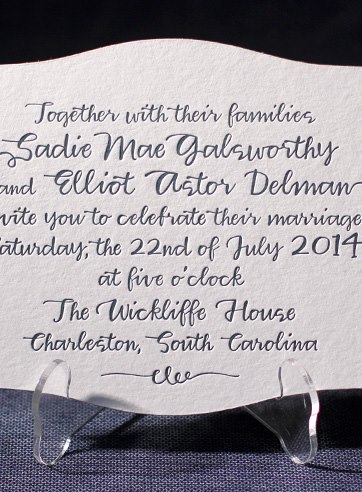 Together with their families
Sadie Mae Galsworthy
and Elliot Astor Delman
nvite you to celebrate their marriage
aturday, the 22nd of July 2014
at five o'clock
The Wickliffe House
Charleston, South Carolina